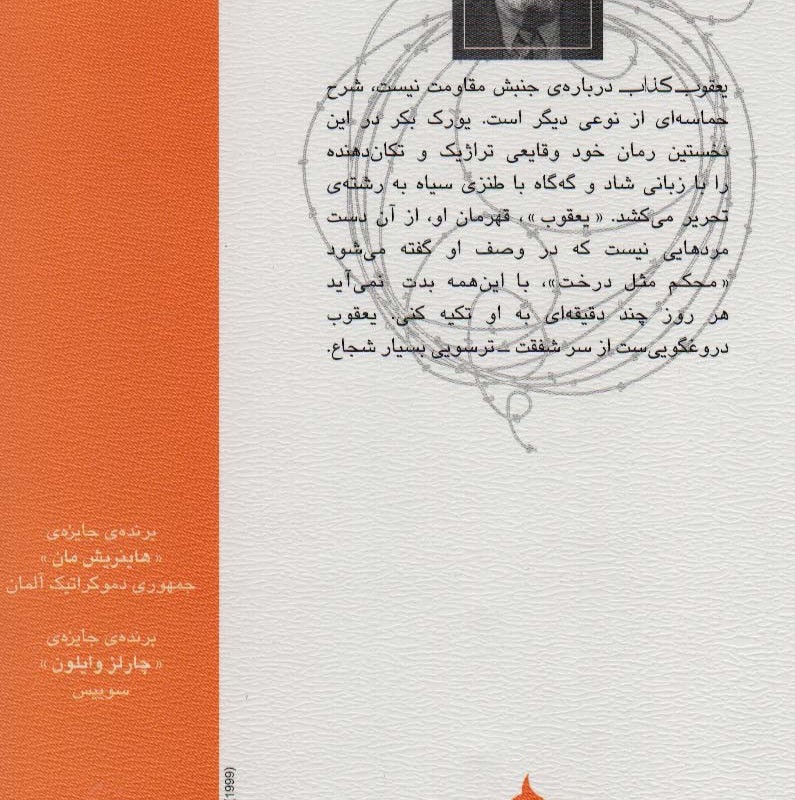 یعقوب کذاب درباره‌ی جنبش مقاومت نیست، شرح
حماسه‌ای از نوعی دیگر است. یورک بکر در این
نخستین رمان خود وقایعی تراژیک و تکان‌دهنده
را با زبانی شاد و گه‌گاه با طنزی سیاه به رشته‌ی
تحریر می‌کشد. «یعقوب»، قهرمان او، از آن دست
مردهایی نیست که در وصف او گفته می‌شود
«محکم مثل درخت»، با این‌همه بدت نمی‌آید
هر روز چند دقیقه‌ای به او تکیه کنی. یعقوب
دروغگویی‌ست از سر شفقت ـ ترسویی بسیار شجاع.
برنده‌ی جایزه‌ی
«هاینریش مان»
جمهوری دموکراتیک آلمان
برنده‌ی جایزه‌ی
«چارلز وایلون»
سوییس
(1999)